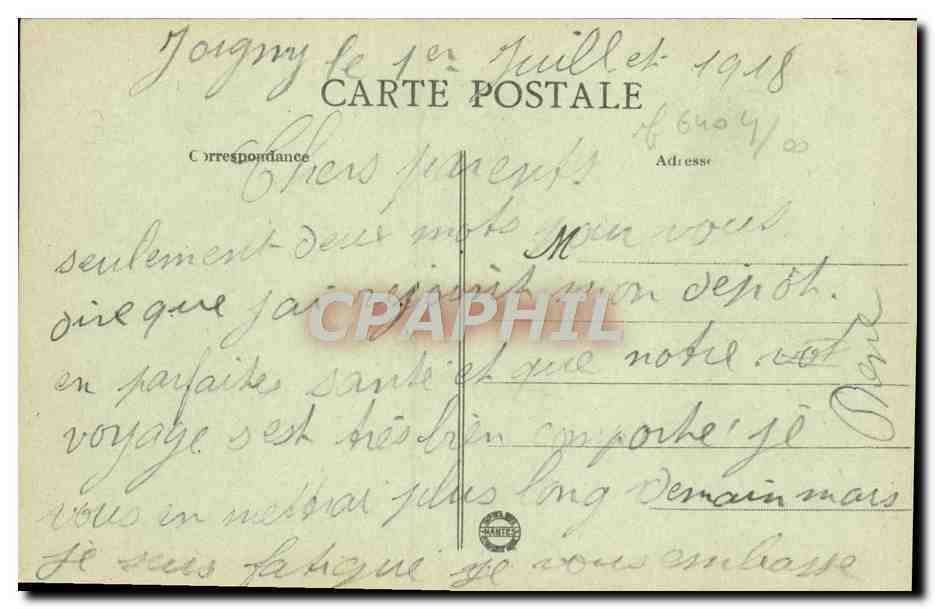 Joigny le 1er Juillet 1918
CARTE POSTALE
Correspondance
Adresse
Chers parents
seulement deux mots pour vous
M
dire que j'ai rejoint mon dépôt.
CPAPHIL
en parfaite santé et que notre
voyage s'est très bien comporté je
vous en mettrai plus long demain mais
NANTES
je suis fatigué je vous embasse
René